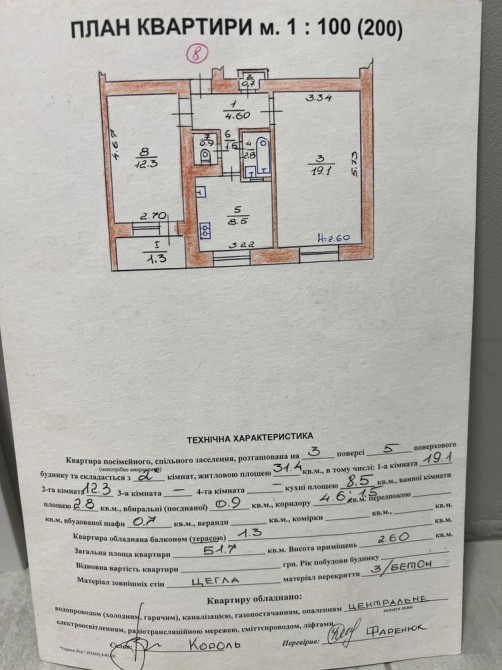 ПЛАН КВАРТИРИ м. 1 : 100 (200)
8
2
0.7
1
4.60
3.34
4.67
8
12.3
7
0.9
6
1.5
4
2.8
3
19.1
5.73
2.70
5
8.5
3.22
H=2.60
I
1.3
ТЕХНІЧНА ХАРАКТЕРИСТИКА
Квартира посімейного, спільного заселення, розташована на 3 поверсі 5 поверхового
(непотрібне закреслити)
будинку та складається з 2 кімнат, житловою площею 31.4 кв.м., в тому числі: 1-а кімната 19.1
2-га кімната 12.3 3-я кімната — 4-та кімната — кухні площею 8.5 кв.м., ванної кімнати
площею 2.8 кв.м., вбиральні (поєднаної) 0.9 кв.м., коридору 4.6; 1.5 кв.м. передпокою
кв.м, вбудованої шафи 0.7 кв.м., веранди кв.м., комірки кв.м. кв.м.
Квартира обладнана балконом (терасою) 1.3 кв.м.
Загальна площа квартири 51.7 кв.м. Висота приміщень 260
Відновна вартість квартири грн. Рік побудови будинку
Матеріал зовнішніх стін ЦЕГЛА матеріал перекриття З/БЕТОН
Квартиру обладнано:
водопроводом (холодним, гарячим), каналізацією, газопостачанням, опаленням ЦЕНТРАЛЬНЕ
електроосвітленням, радіотрансляційною мережею, сміттєпроводом, ліфтами.
Склав: КОРОЛЬ Перевірив: ФАРЕНЮК